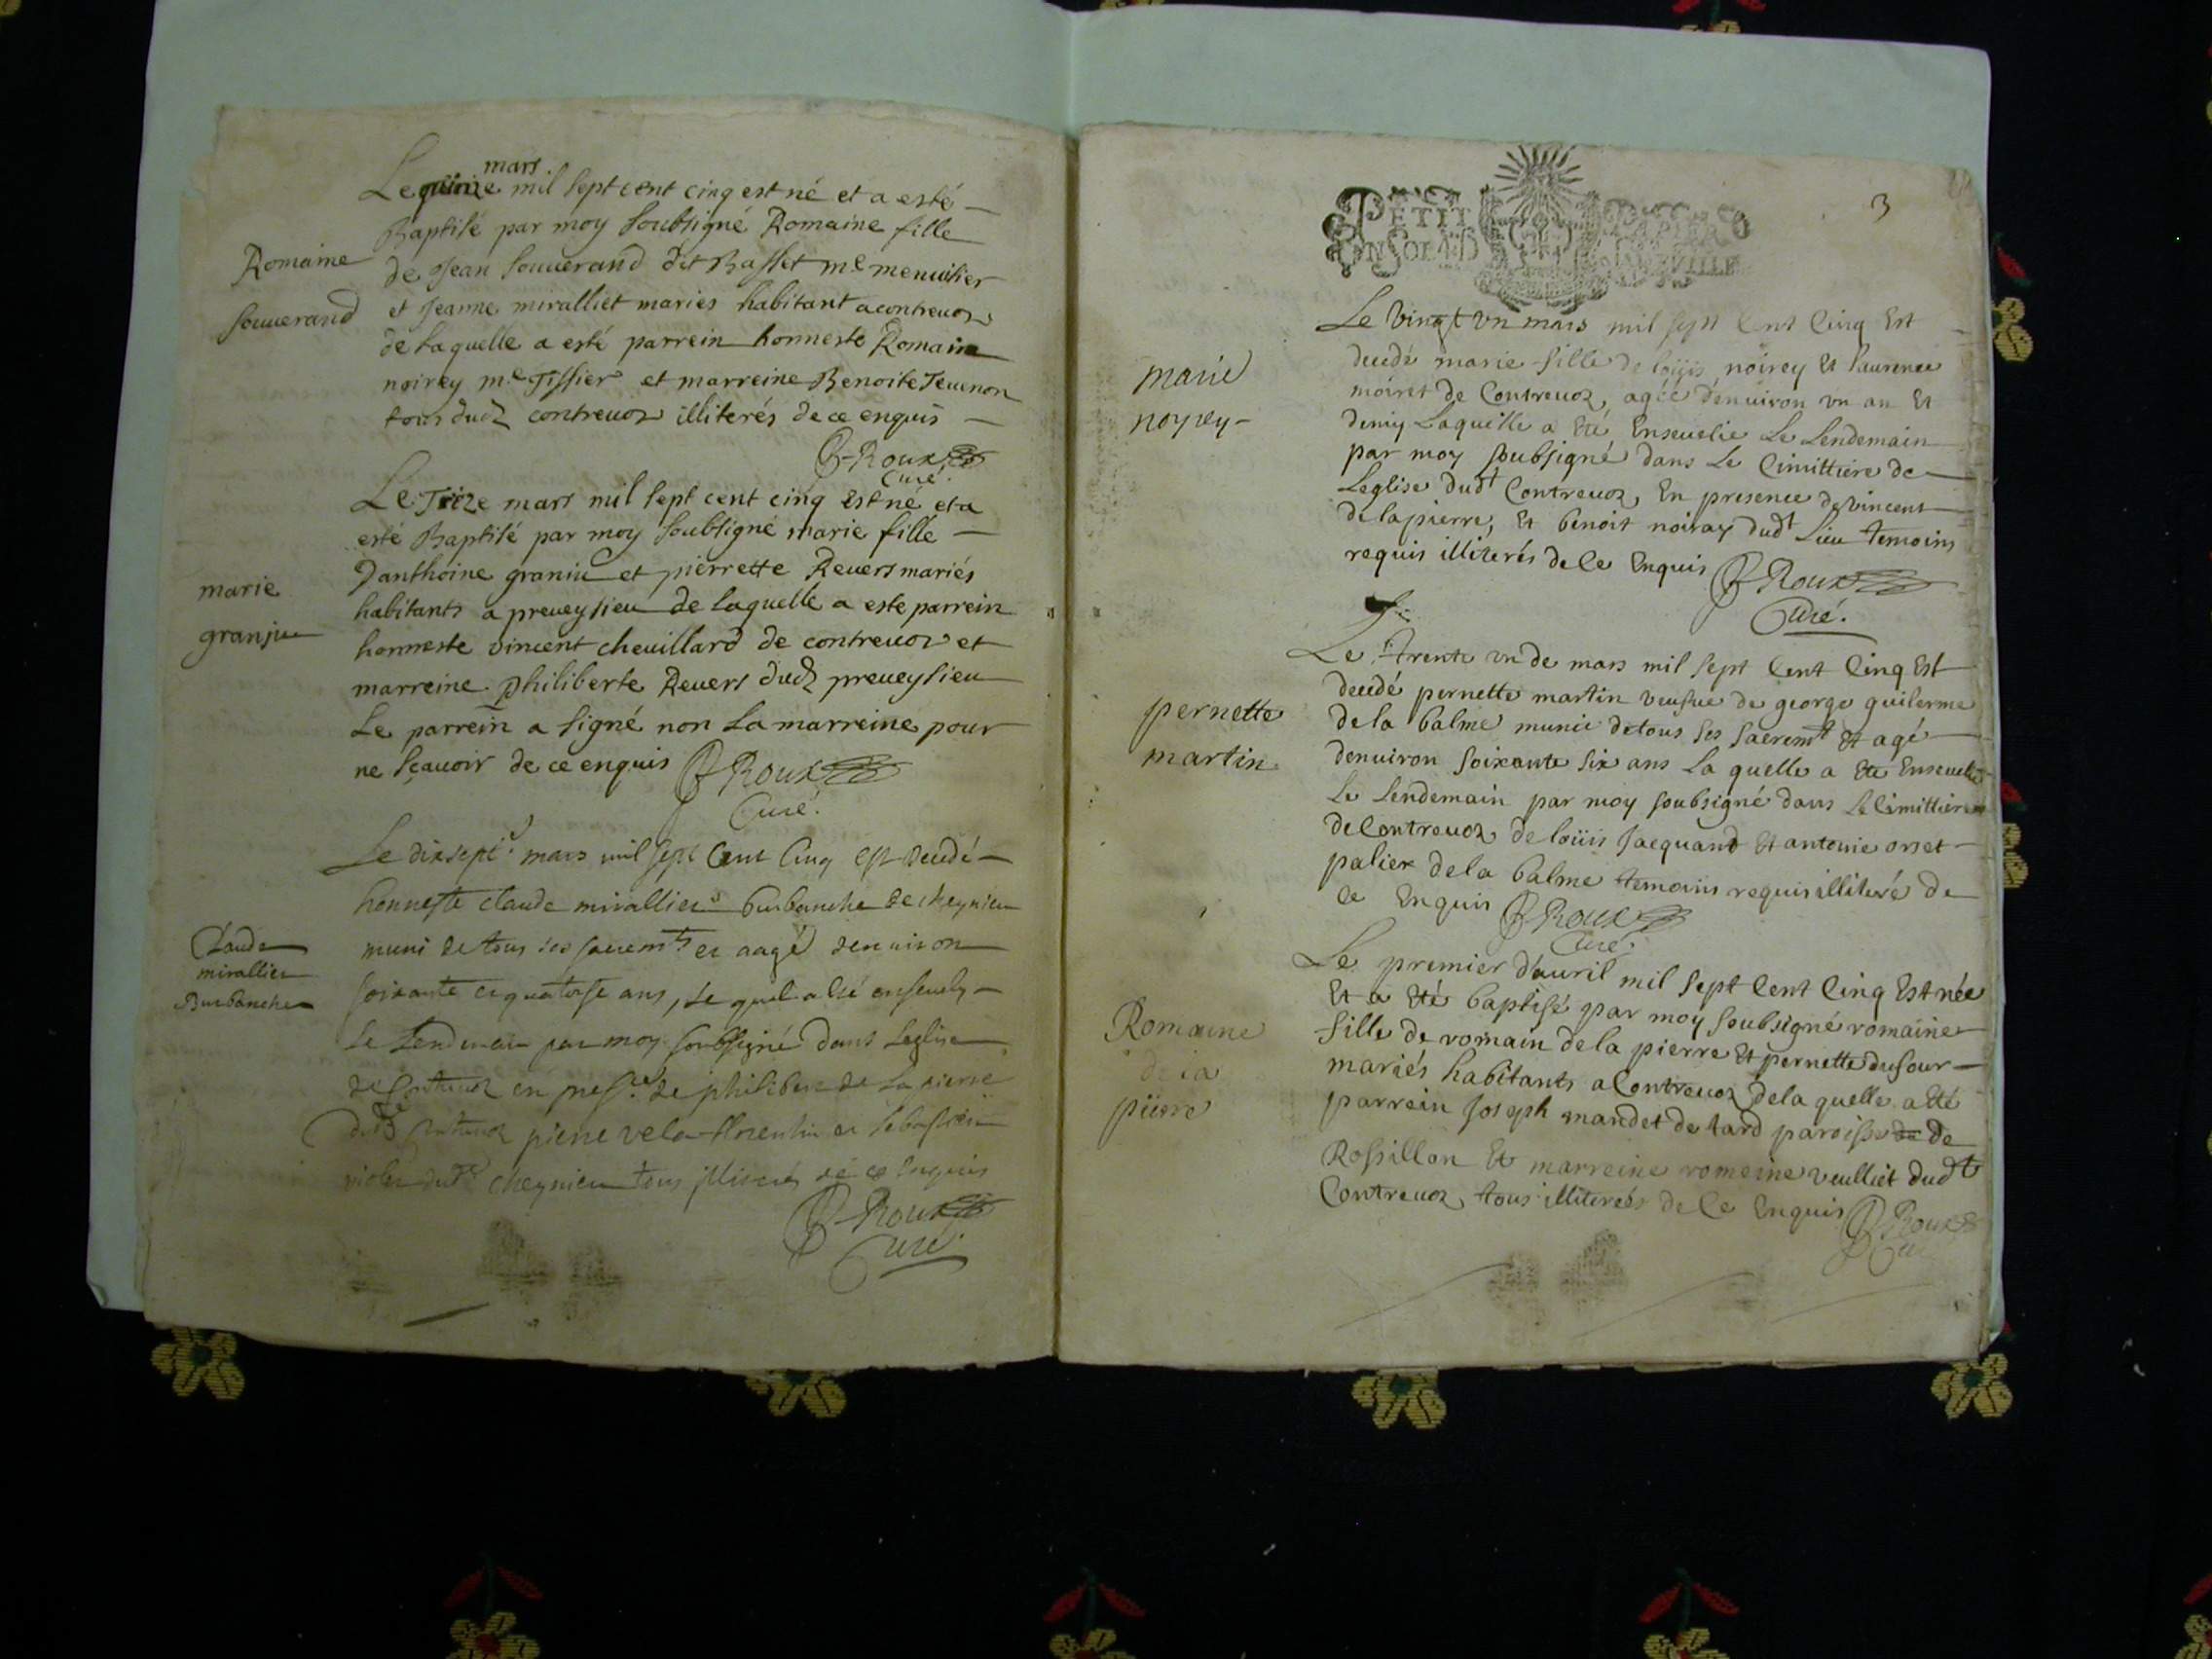 mars
Le quinze mil sept cent cinq est né et a esté
Baptisé par moy soubsigné Romaine fille
Romaine
de Jean souuerand dit Basset me menuisier
souuerand
et Jeanne miralliet mariés habitant a contreuoz
de laquelle a esté parrein honneste Romain
noirey me Tissier et marreine Benoite Teuenon
tous dudz contreuoz illiterés de ce enquis
B-Roux
Curé.
Le Treize mars mil sept cent cinq est né et a
esté Baptisé par moy soubsigné marie fille
marie
granju
Danthoine et pierrette Reuers mariés
habitants a preueysieu de laquelle a este parrein
honneste vincent cheuillard de contreuoz et
marreine philiberte Reuers dudz preueysieu
Le parrein a signé non La marreine pour
ne sçauoir de ce enquis B Roux
Curé.
Le dixsept mars mil sept Cent Cinq est decedé
honneste claude mirallier burbanche de cheynieu
Claude
mirallier
Burbanche
muni de tous ses sacremts et aagé denuiron
soixante et quatorse ans, le quel a été enseuely
le Lendemain par moy soubsigné dans Leglise
de Contreuoz en presce de philibert de La pierre
dudt Contreuoz pierre vela florentin et sebastien
dudt cheynieu tous illiterés de ce enquis
B-Roux
Curé.
3
PETIT PAPIER
UN SOL
Le vingt vn mars mil sept Cent Cinq Est
marie
noyrey
decedé marie fille de loüis noirey Et laurence
moiret de Contreuoz, agée denuiron vn an Et
demy Laquelle a Eté Enseuelie Le Lendemain
par moy soubsigné dans Le Cimittiere de
Leglise dudt Contreuoz, En presence de vincent
delapierre, Et benoit noiray dudt Lieu temoins
requis illiterés de Ce Enquis B Roux
Curé.
Le trente vn de mars mil sept Cent Cinq Est
decedé pernette martin veufue de george guilerme
pernette
martin
dela balme munie de tous ses sacremt Et agé
denuiron soixante six ans La quelle a Ete Enseuelie
Le Lendemain par moy soubsigné dans Le Cimittiere
de Contreuoz de loüis Jacquand Et antoine orset
palier dela balme temoins requis illiteré de
Ce Enquis B Roux
Curé.
Le premier d'auril mil sept Cent Cinq Est née
Et a Eté baptisé par moy soubsigné romaine
Romaine
dela
pierre
fille de romain dela pierre Et pernette dufour
mariés habitants a Contreuoz dela quelle a Eté
parrein Joseph mandet de tard paroisse de de
Rossillon Et marreine romeine veulliet dudt
Contreuoz tous illiterés de Ce Enquis B Roux
Curé